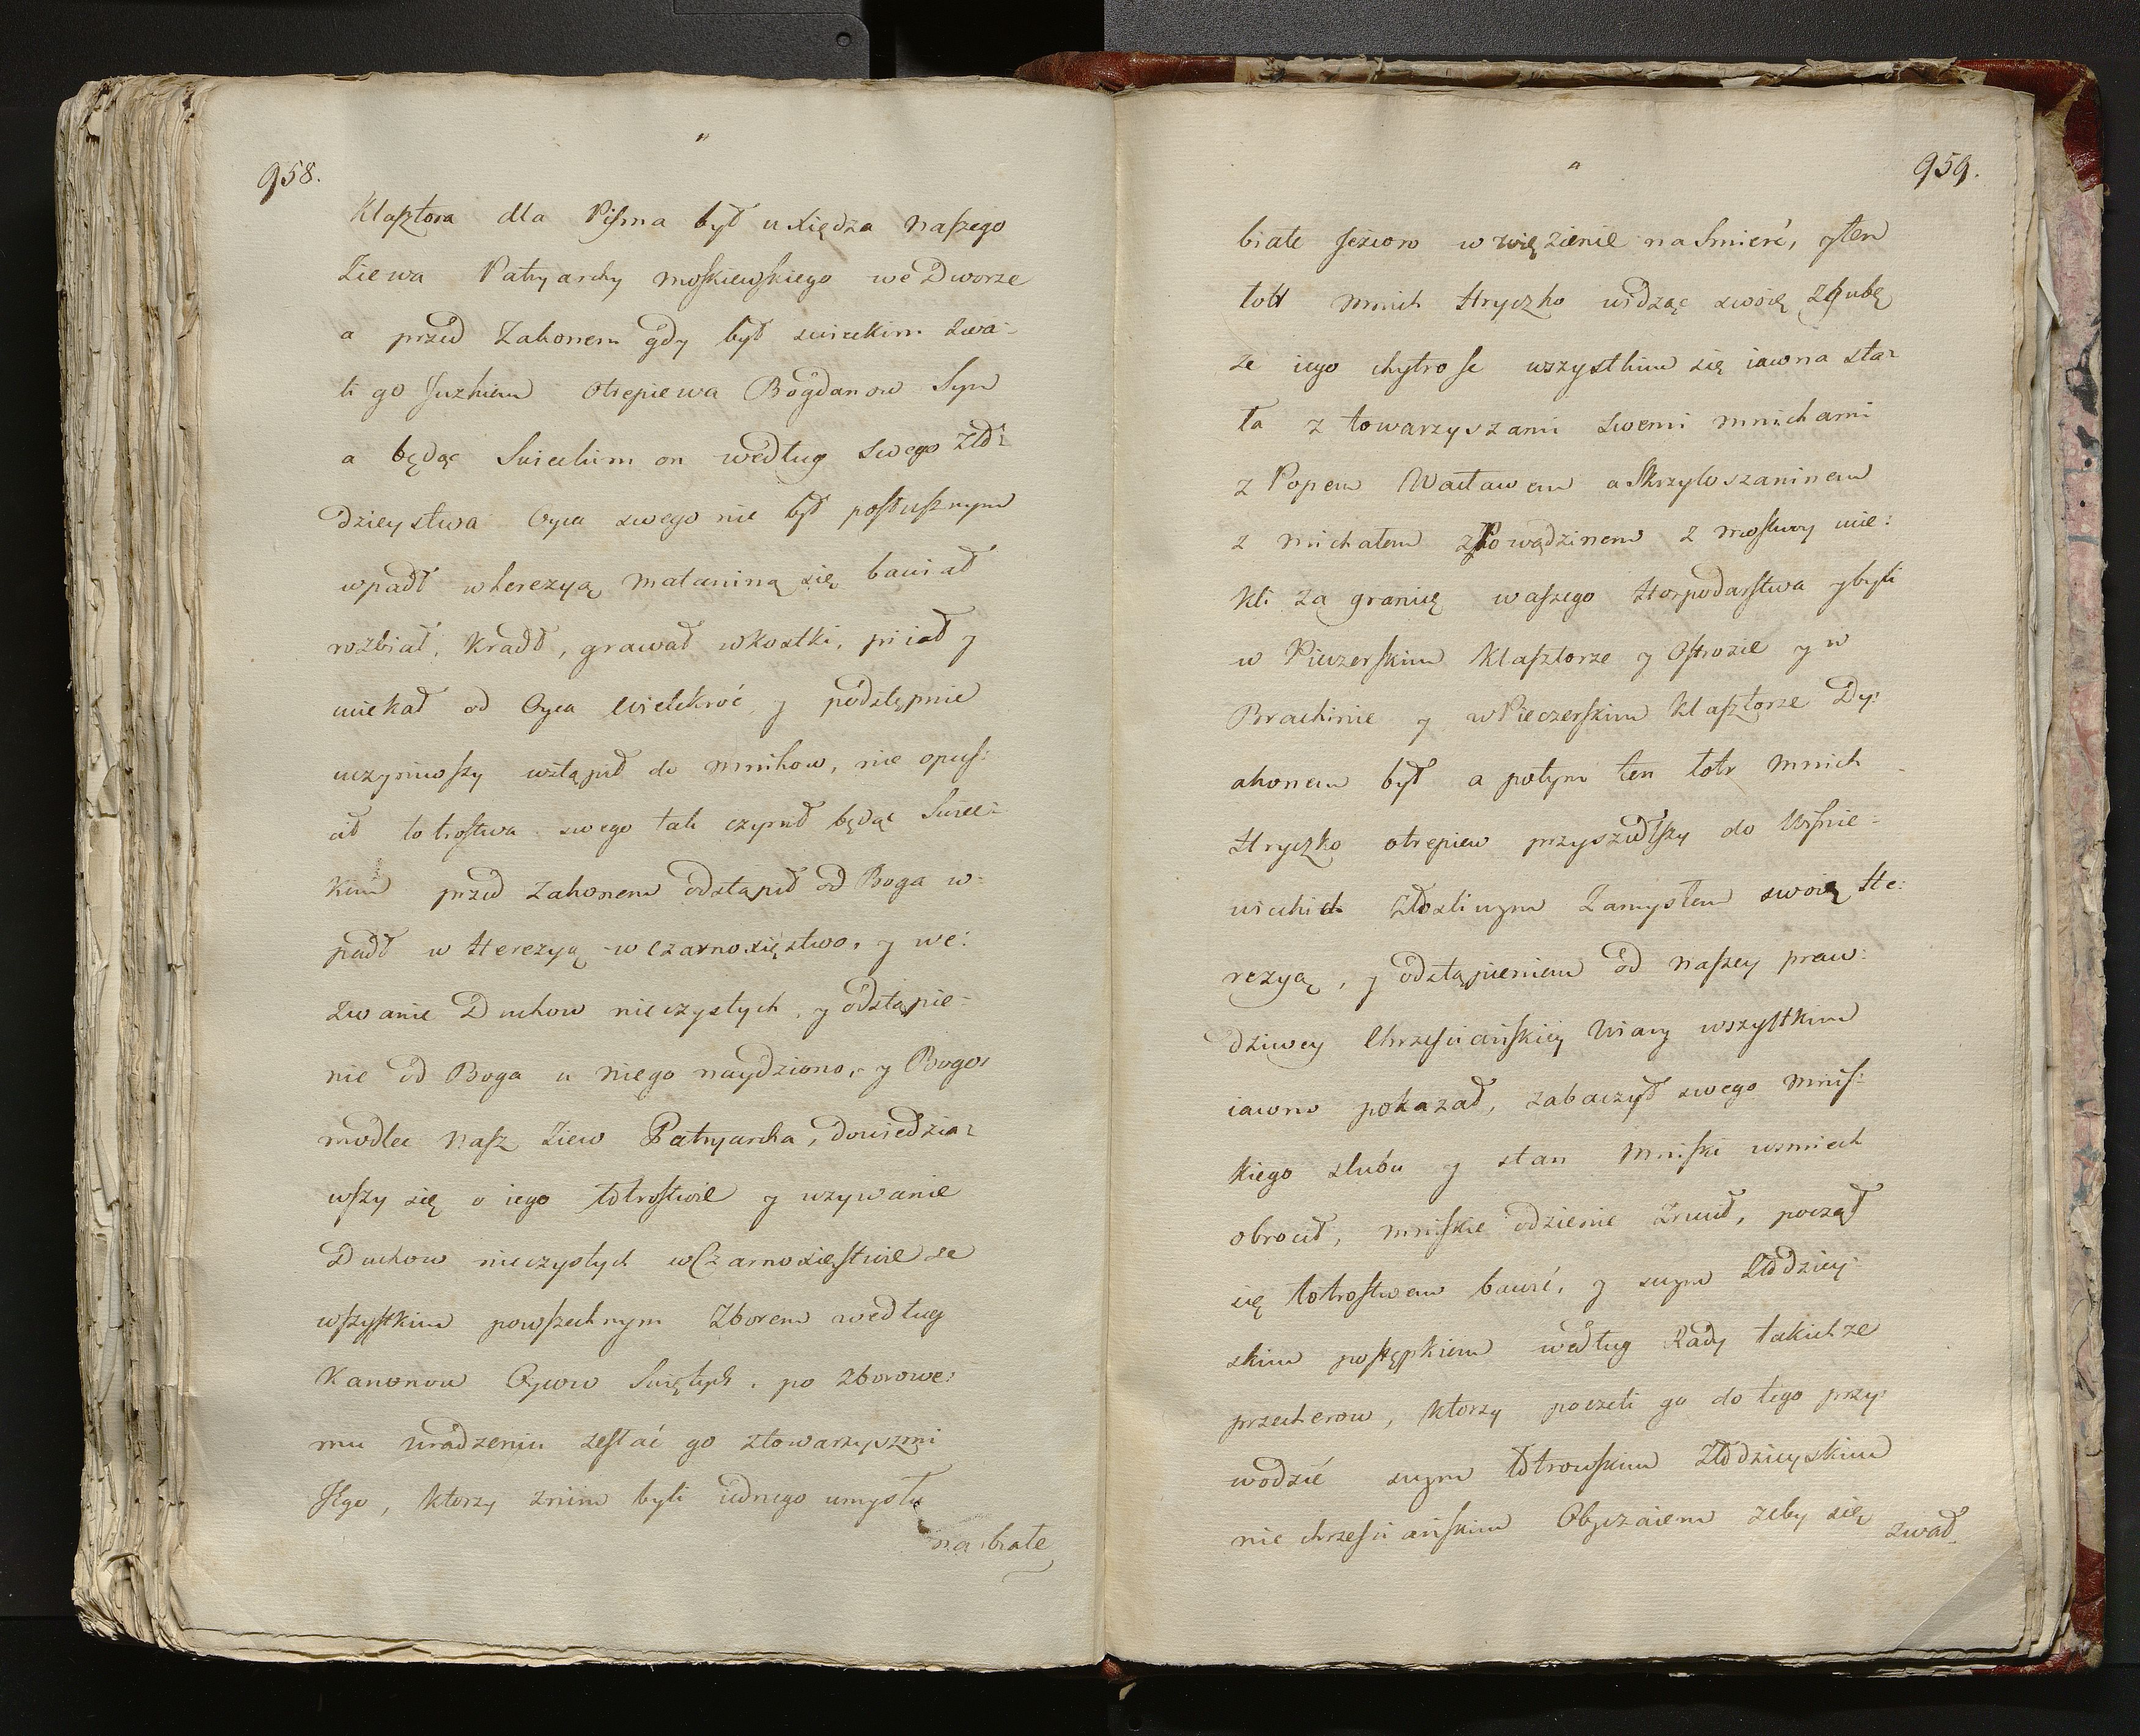 958.
Klasztora dla Pisma był u xiędza naszego
Ziewa Patryarchy moskiewskiego we Dworze
a przed Zakonem gdy był swieckim zwa-
li go Juzkiem Otrepiewa Bogdanow Syn
a będąc Swieckim on według swego Zło-
dzieystwa Oyca swego nie był posłusznym
wpadł w herezyą matanirą się bawiał
rozbiał, kradł, grawał w kostki, piiał y
uciekał od Oyca wielekroć y podstępnie
uczyniwszy wstąpił do mnihow, nie opuś:
cił łotrostwa swego tak czynił będąc Swiec-
kim przed Zakonem odstąpił od Boga w-
padł w Herezyą w czarnoxięstwo, y we:
zwanie Duchow nieczystych, y odstąpie-
nie od Boga u niego naydziono, y Bogo-
modlec nasz Ziew Patryarcha, dowiedzia-
wszy się o iego łotrostwie y uzywanie
Duchow nieczystych w Czarnoxięstwie ze
wszystkim powszechnym Zborem według
Kanonow Oycow Swiętych, po zborowe:
mu uradzeniu zesłać go ztowarzyszmi
Jego, ktorzy znim byli iednego umysłu
na białe
959.
białe Jezioro w więzienie na Smierć, y ten
łotr mnich Hryczko widząc swoię zgubę
ze iego chytrosc wszystkim się iawna sta-
ła z towarzyszami swemi mnichami
z Popem Wacławem a Skrzyloszaninem
z michałem Powadzinem z moskwy ucie:
kli za granicę waszego Hospodarstwa y byli
w Pieczerskim Klasztorze y Ostrozie y w
Brachinie y w Pieczerskim Klasztorze Dy:
akonem był a potym ten łotr mnich
Hryczko otrepiew przyszedłszy do Wisnie-
wieckich złosliwym Zamysłem swoią He:
rezyą, y odstąpieniem od naszey praw:
dziwey Chrzesciańskiey Wiary wszystkim
iawno pokazał, zabaczył swego mnis:
kiego slubu y stan Mniski wsmiech
obrocił, mniskie odzienie zrucił, począł
się łotrostwem bawić, y swym złodziey-
skim postępkiem według Rady takichze
przecherow, ktorzy poczeli go do tego przy:
wodzić swym łotrowskim złodzieyskim
nie chrzesciańskim Obyczaiem zeby się
zwał